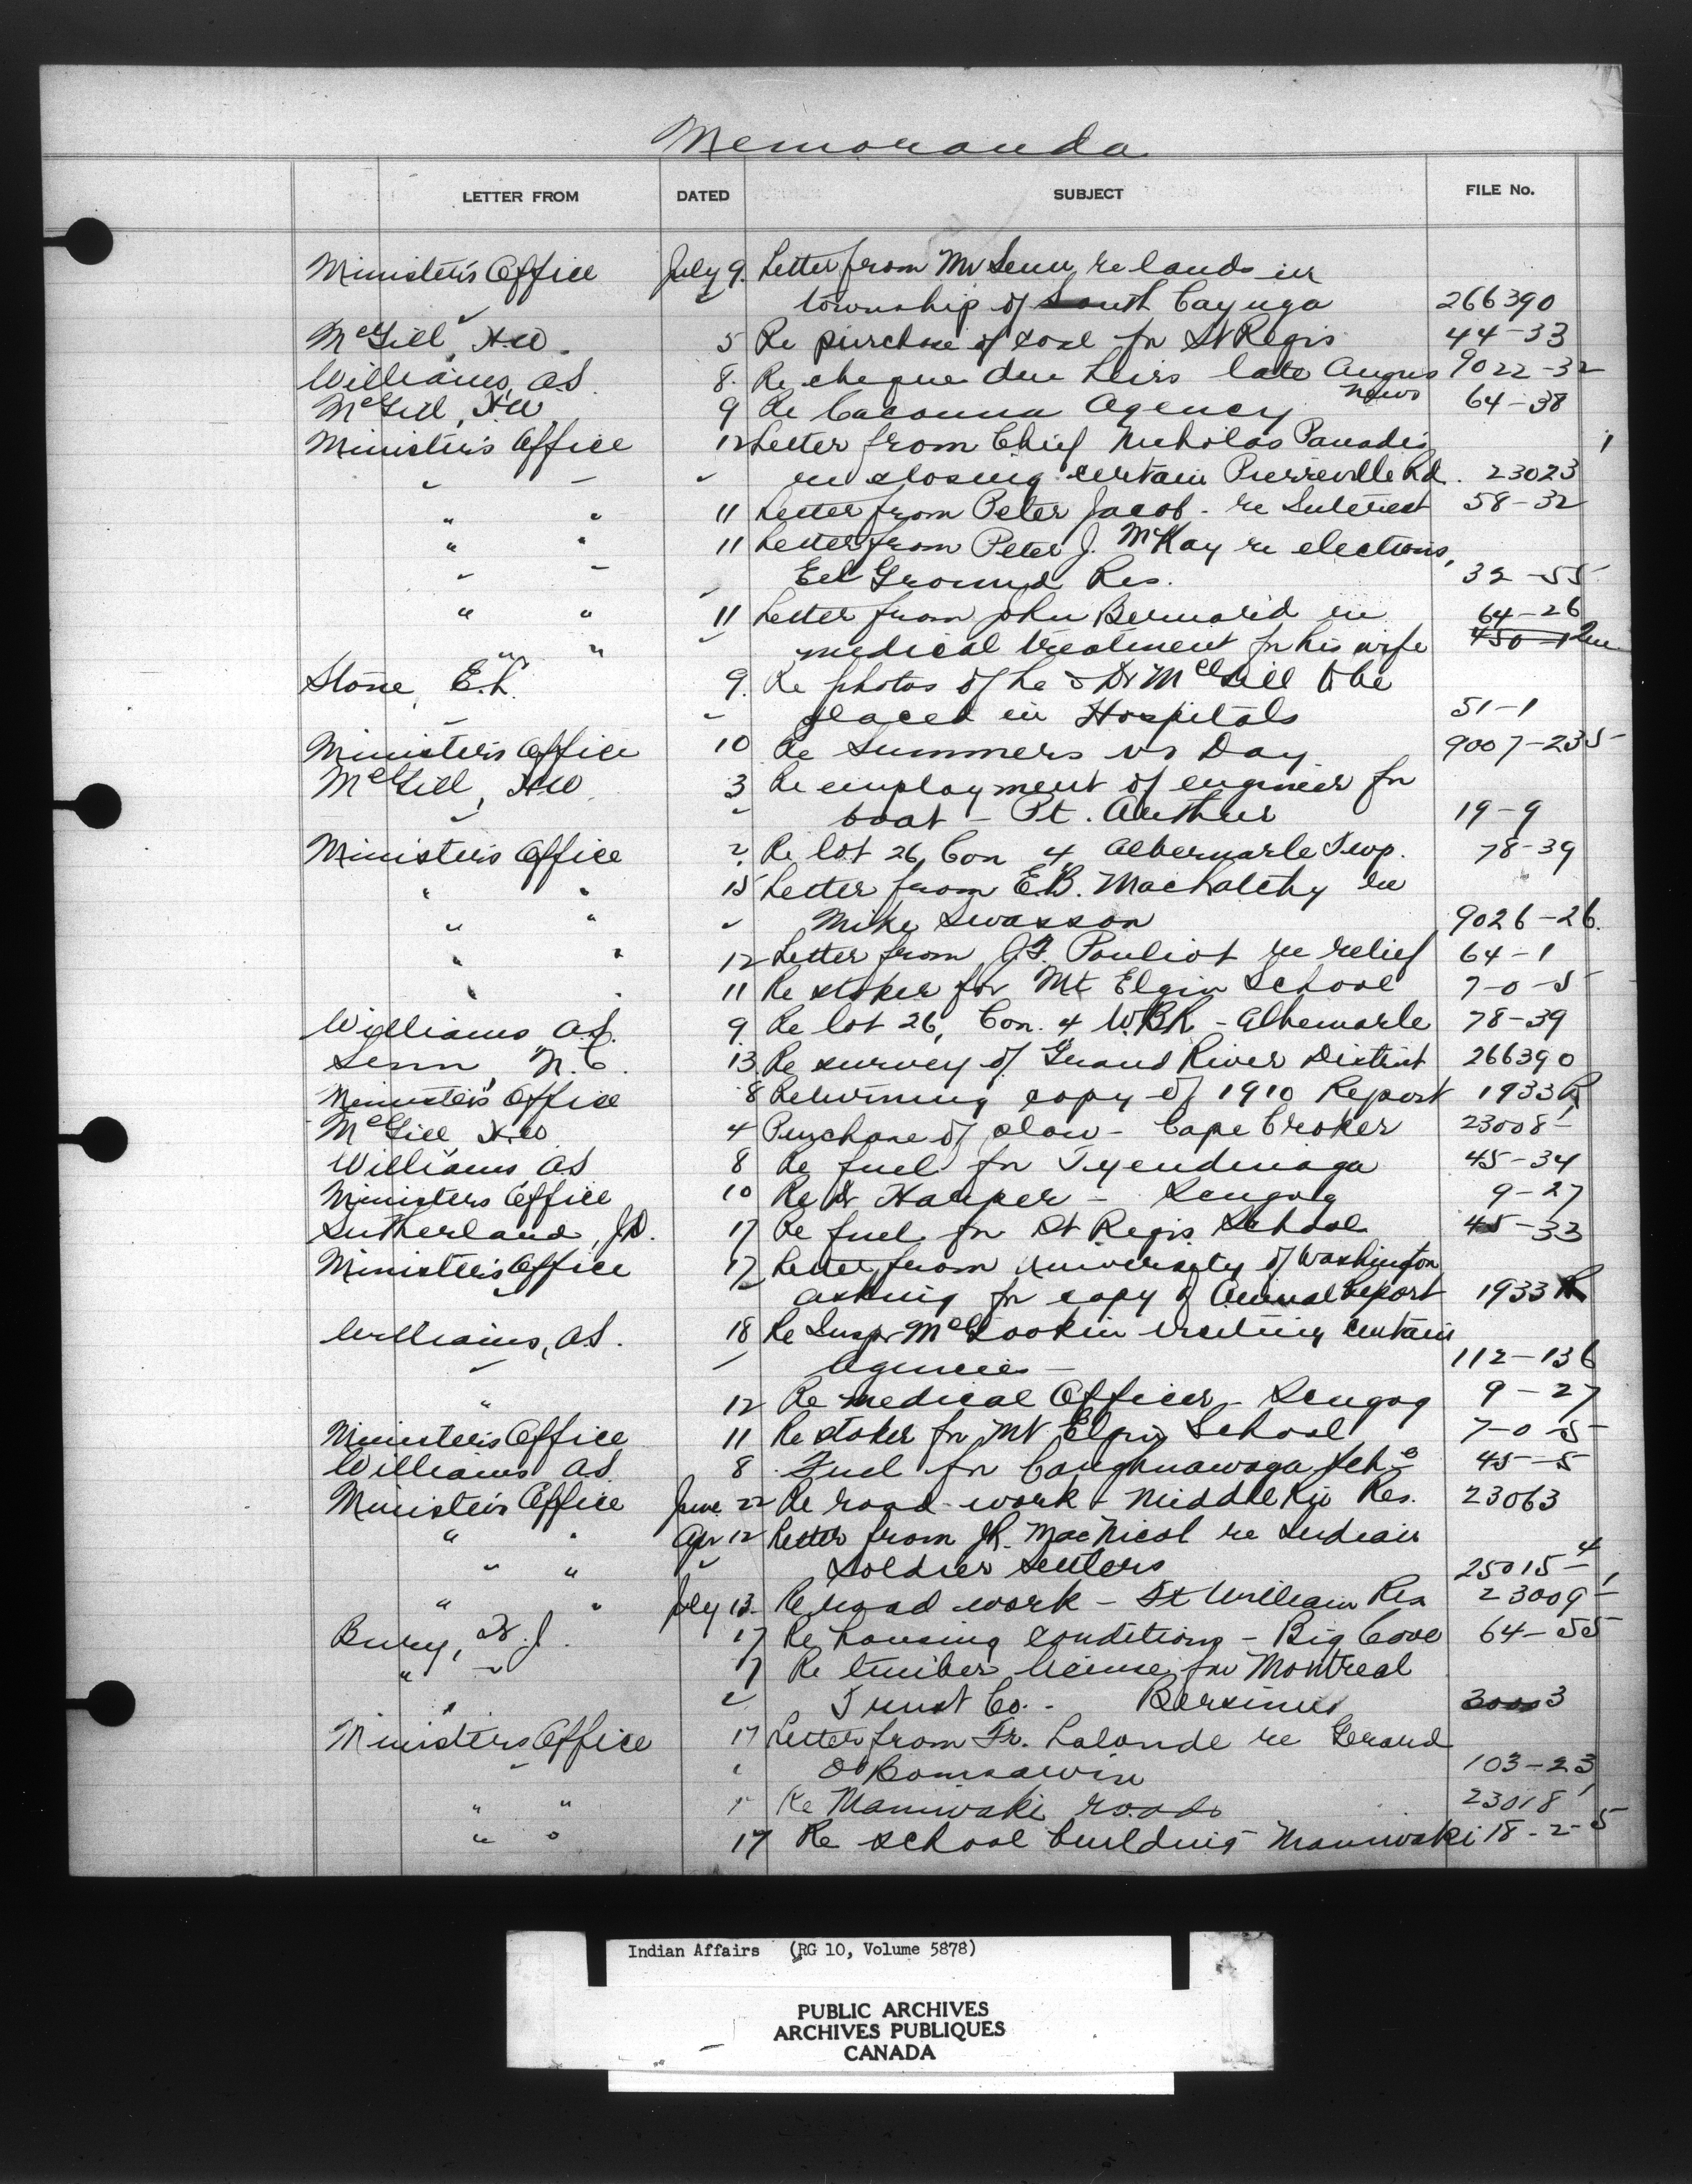 Memoranda
LETTER FROM DATED SUBJECT FILE No.
Minister's Office July 9. Letter from Mr Senn re lands in
" township of South Cayuga 266390
McGill, H.W. 5 Re purchase of coal for St Regis 44-33
Williams, A.S. 8. Re cheque due heirs late Angus 9022-32
News
McGill, H.W. 9 Re Cacouna Agency 64-38
Minister's Office 12 Letter from Chief Nicholas Panadis
" " " enclosing certain Pierreville Rd. 23023
" " 11 Letter from Peter Jacob - re Interest 58-32
" " 11 Letter from Peter J. McKay re elections,
" " " Eel Ground Res. 32-55
" " 11 Letter from John Bernard re 64-26
" " " medical treatment for his wife
Stone, E.L. 9. Re photos of he & Dr McGill to be
" placed in Hospitals 51-1
Minister's Office 10 Re Summers vs Day 9007-235
McGill, H.W. 3 Re employment of engineer for
" " boat - Pt. Arthur 19-9
Minister's Office 2 Re lot 26, Con 4, Albermarle Twp. 78-39
" " 15 Letter from E.B. MacLatchy re
" " " Mike Swasson 9026-26.
" " 12 Letter from J.F. Pouliot re relief 64-1
" " 11 Re stoker for Mt Elgin School 7-0-5
Williams A.S. 9 Re lot 26, Con. 4 W.B.R. - Albemarle 78-39
Senn, M.C. 13. Re survey of Grand River District 266390
Minister's Office 8 Returning copy of 1910 Report 1933 R
McGill, H.W. 4 Purchase of plow - Cape Croker 23008-1
Williams A.S. 8 Re fuel for Tyendinaga 45-34
Ministers Office 10 Re Dr Harper - Scugog 9-27
Sutherland, J.D. 17 Re fuel for St Regis School 45-33
Minister's Office 17 Letter from University of Washington
" " asking for copy of Annual Report 1933 R
Williams, A.S. 18 Re Inspr McGookin visiting certain
" " Agencies - 112-136
" 12 Re medical Officer - Scugog 9-27
Minister's Office 11 Re stoker for Mt Elgin School 7-0-5
Williams A.S. 8 Fuel for Caughnawaga Sch. 45-5
Minister's Office June 22 Re road work - Middle Riv Res. 23063
" " Apr 12 Letter from J.R. MacNicol re Indian
" " " soldier settlers 25015-4
" " July 13. Re road work - Ft William Res 23009-1
Bury, H.J. 17 Re housing conditions - Big Cove 64-55
" " 17 Re timber license for Montreal
" " Trust Co. - Bersimis 30003
Ministers Office 17 Letter from Fr. Lalonde re Gerard
" " O'Bomsawin 103-23
" " " Re Maniwaki roads 23018
" " 17 Re school building Maniwaki 18-2-5
Indian Affairs (RG 10, Volume 5878)
PUBLIC ARCHIVES
ARCHIVES PUBLIQUES
CANADA